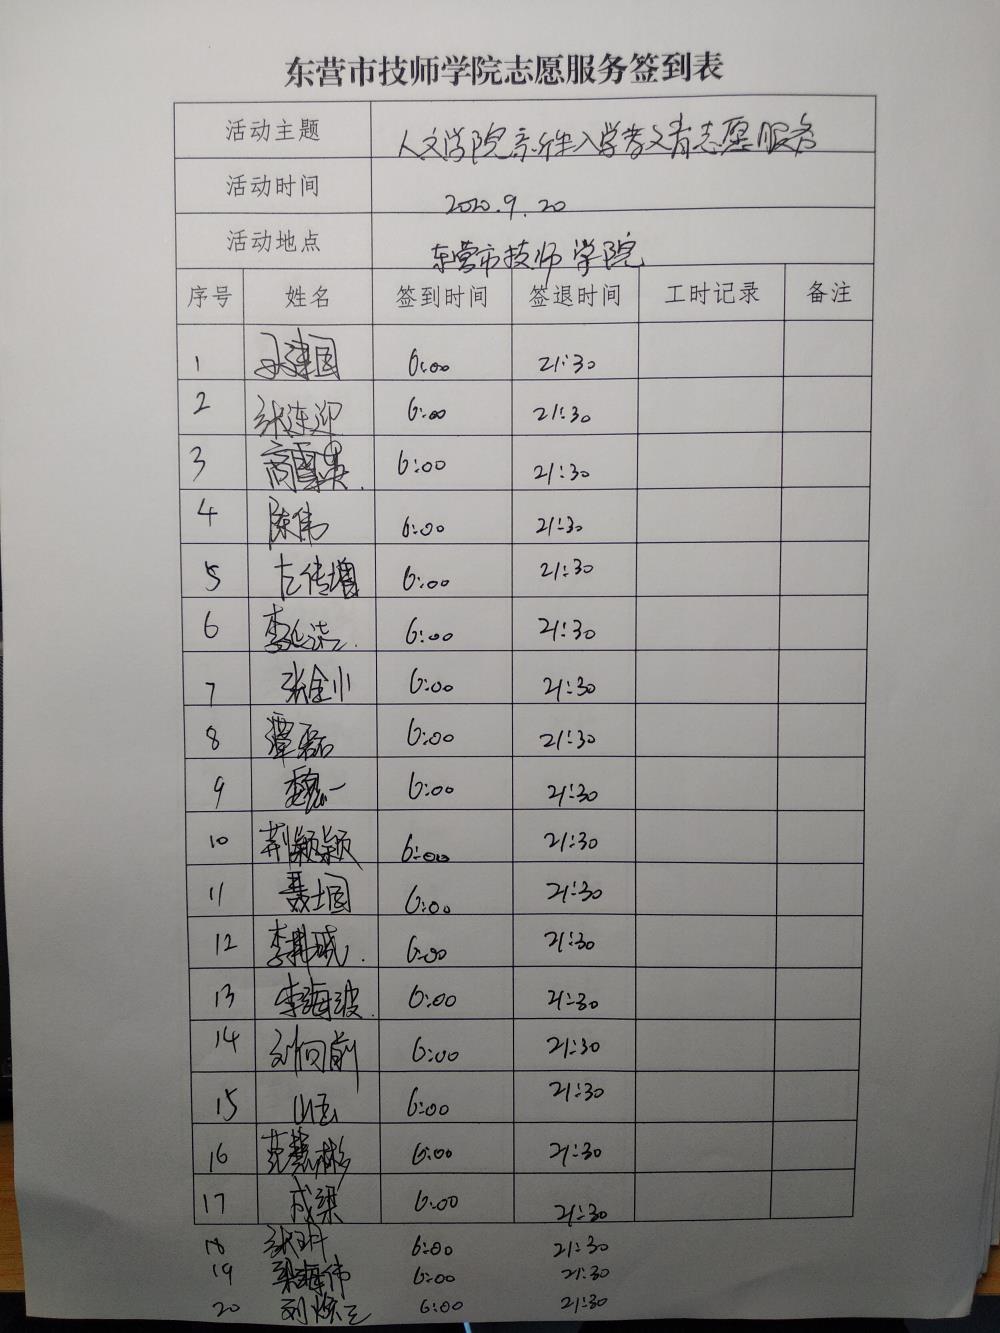 东营市技师学院志愿服务签到表
活动主题 人文学院新生入学教育志愿服务
活动时间 2020.9.20
活动地点 东营市技师学院
序号 姓名 签到时间 签退时间 工时记录 备注
1 建国 6:00 21:30
2 张连迎 6:00 21:30
3 6:00 21:30
4 陈伟 6:00 21:30
5 左传增 6:00 21:30
6 李 6:00 21:30
7 张金小 6:00 21:30
8 潭磊 6:00 21:30
9 魏一 6:00 21:30
10 荆颖颖 6:00 21:30
11 聂士国 6:00 21:30
12 李 6:00 21:30
13 李海波 6:00 21:30
14 刘向前 6:00 21:30
15 山 6:00 21:30
16 范慧彬 6:00 21:30
17 成梁 6:00 21:30
18 张玥 6:00 21:30
19 梁海伟 6:00 21:30
20 刘 6:00 21:30